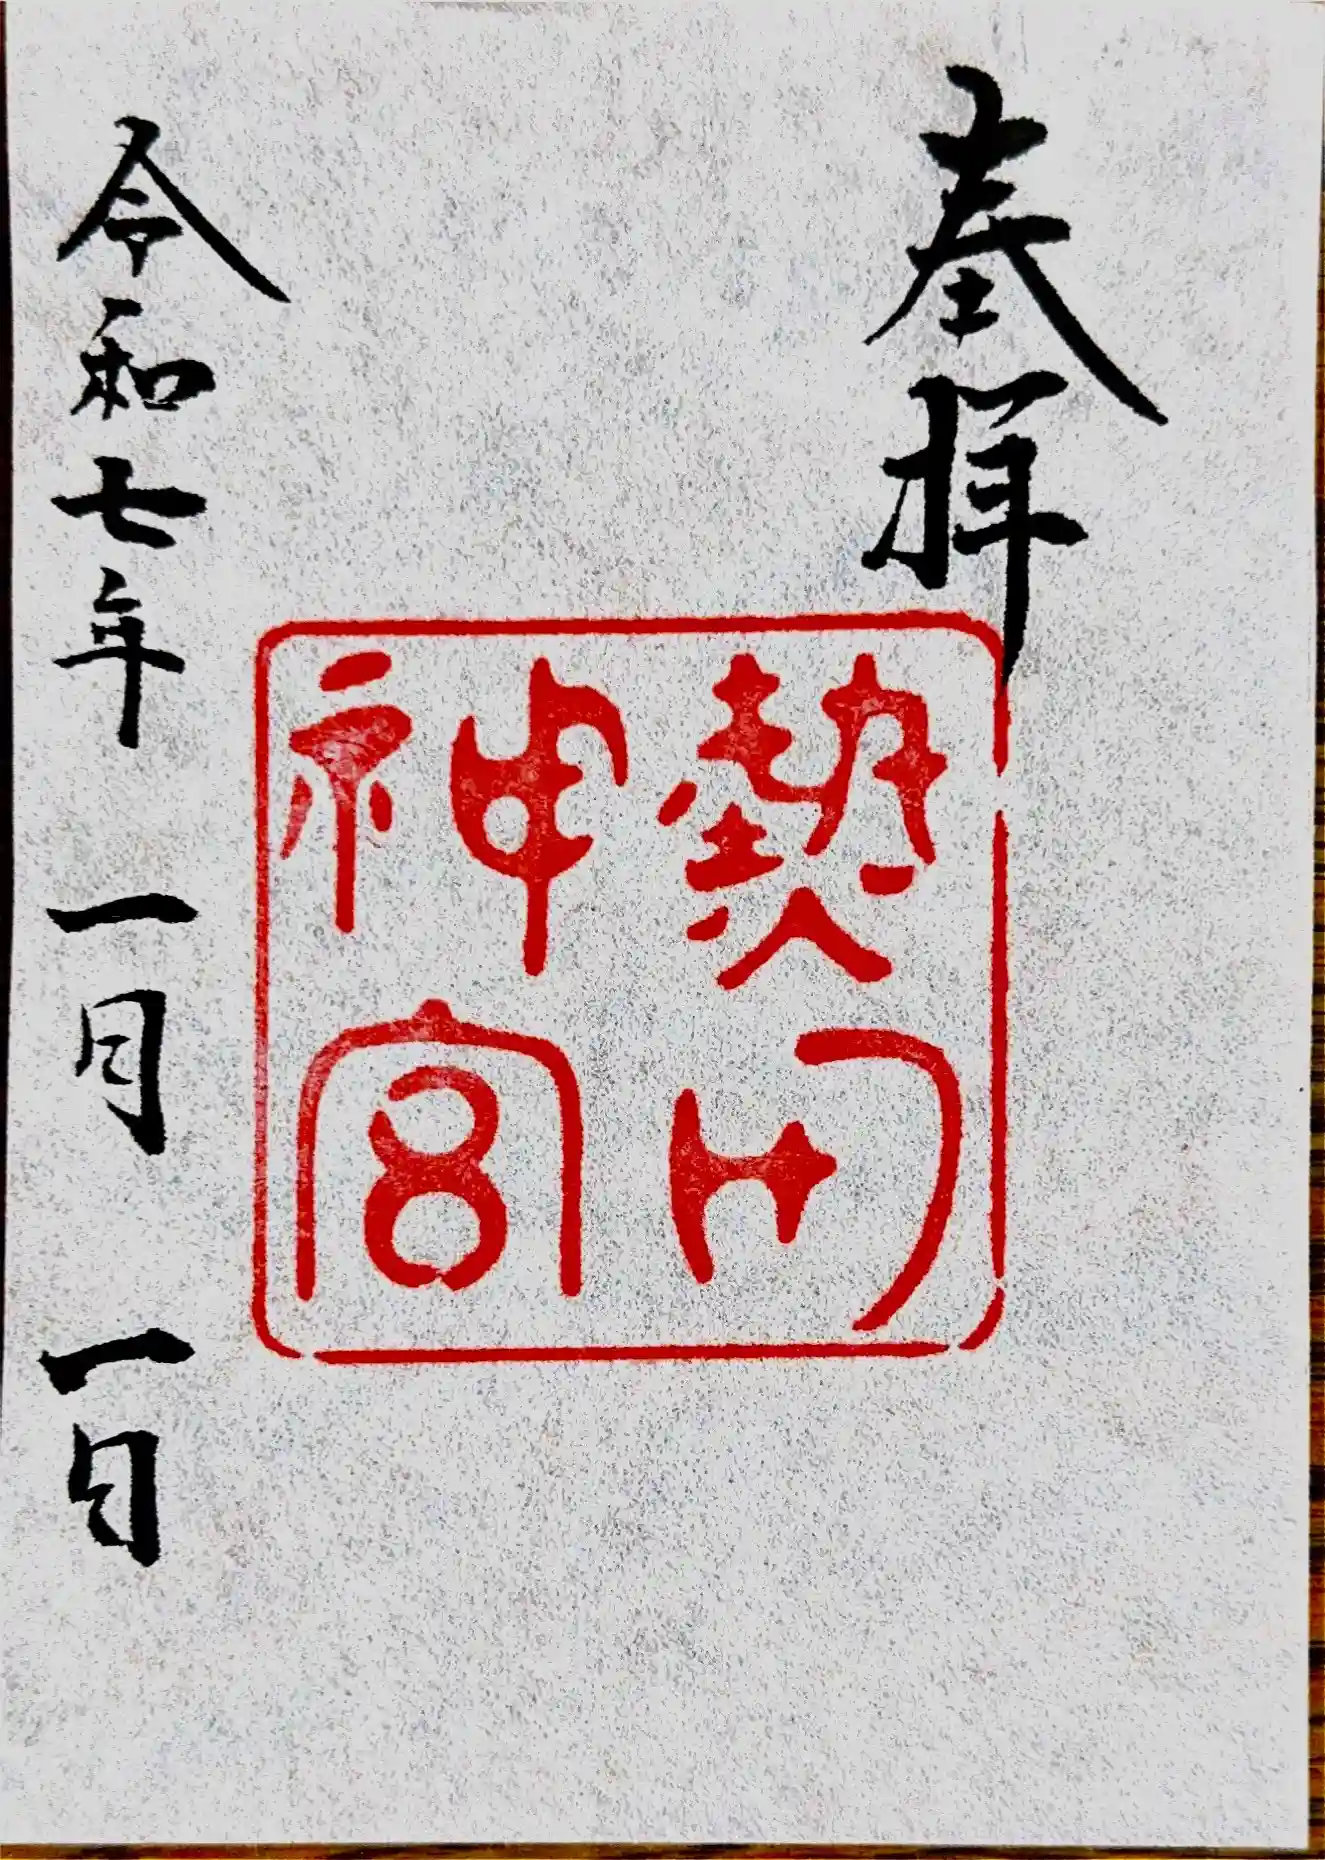 奉拝
熱田
神宮
令和七年一月一日